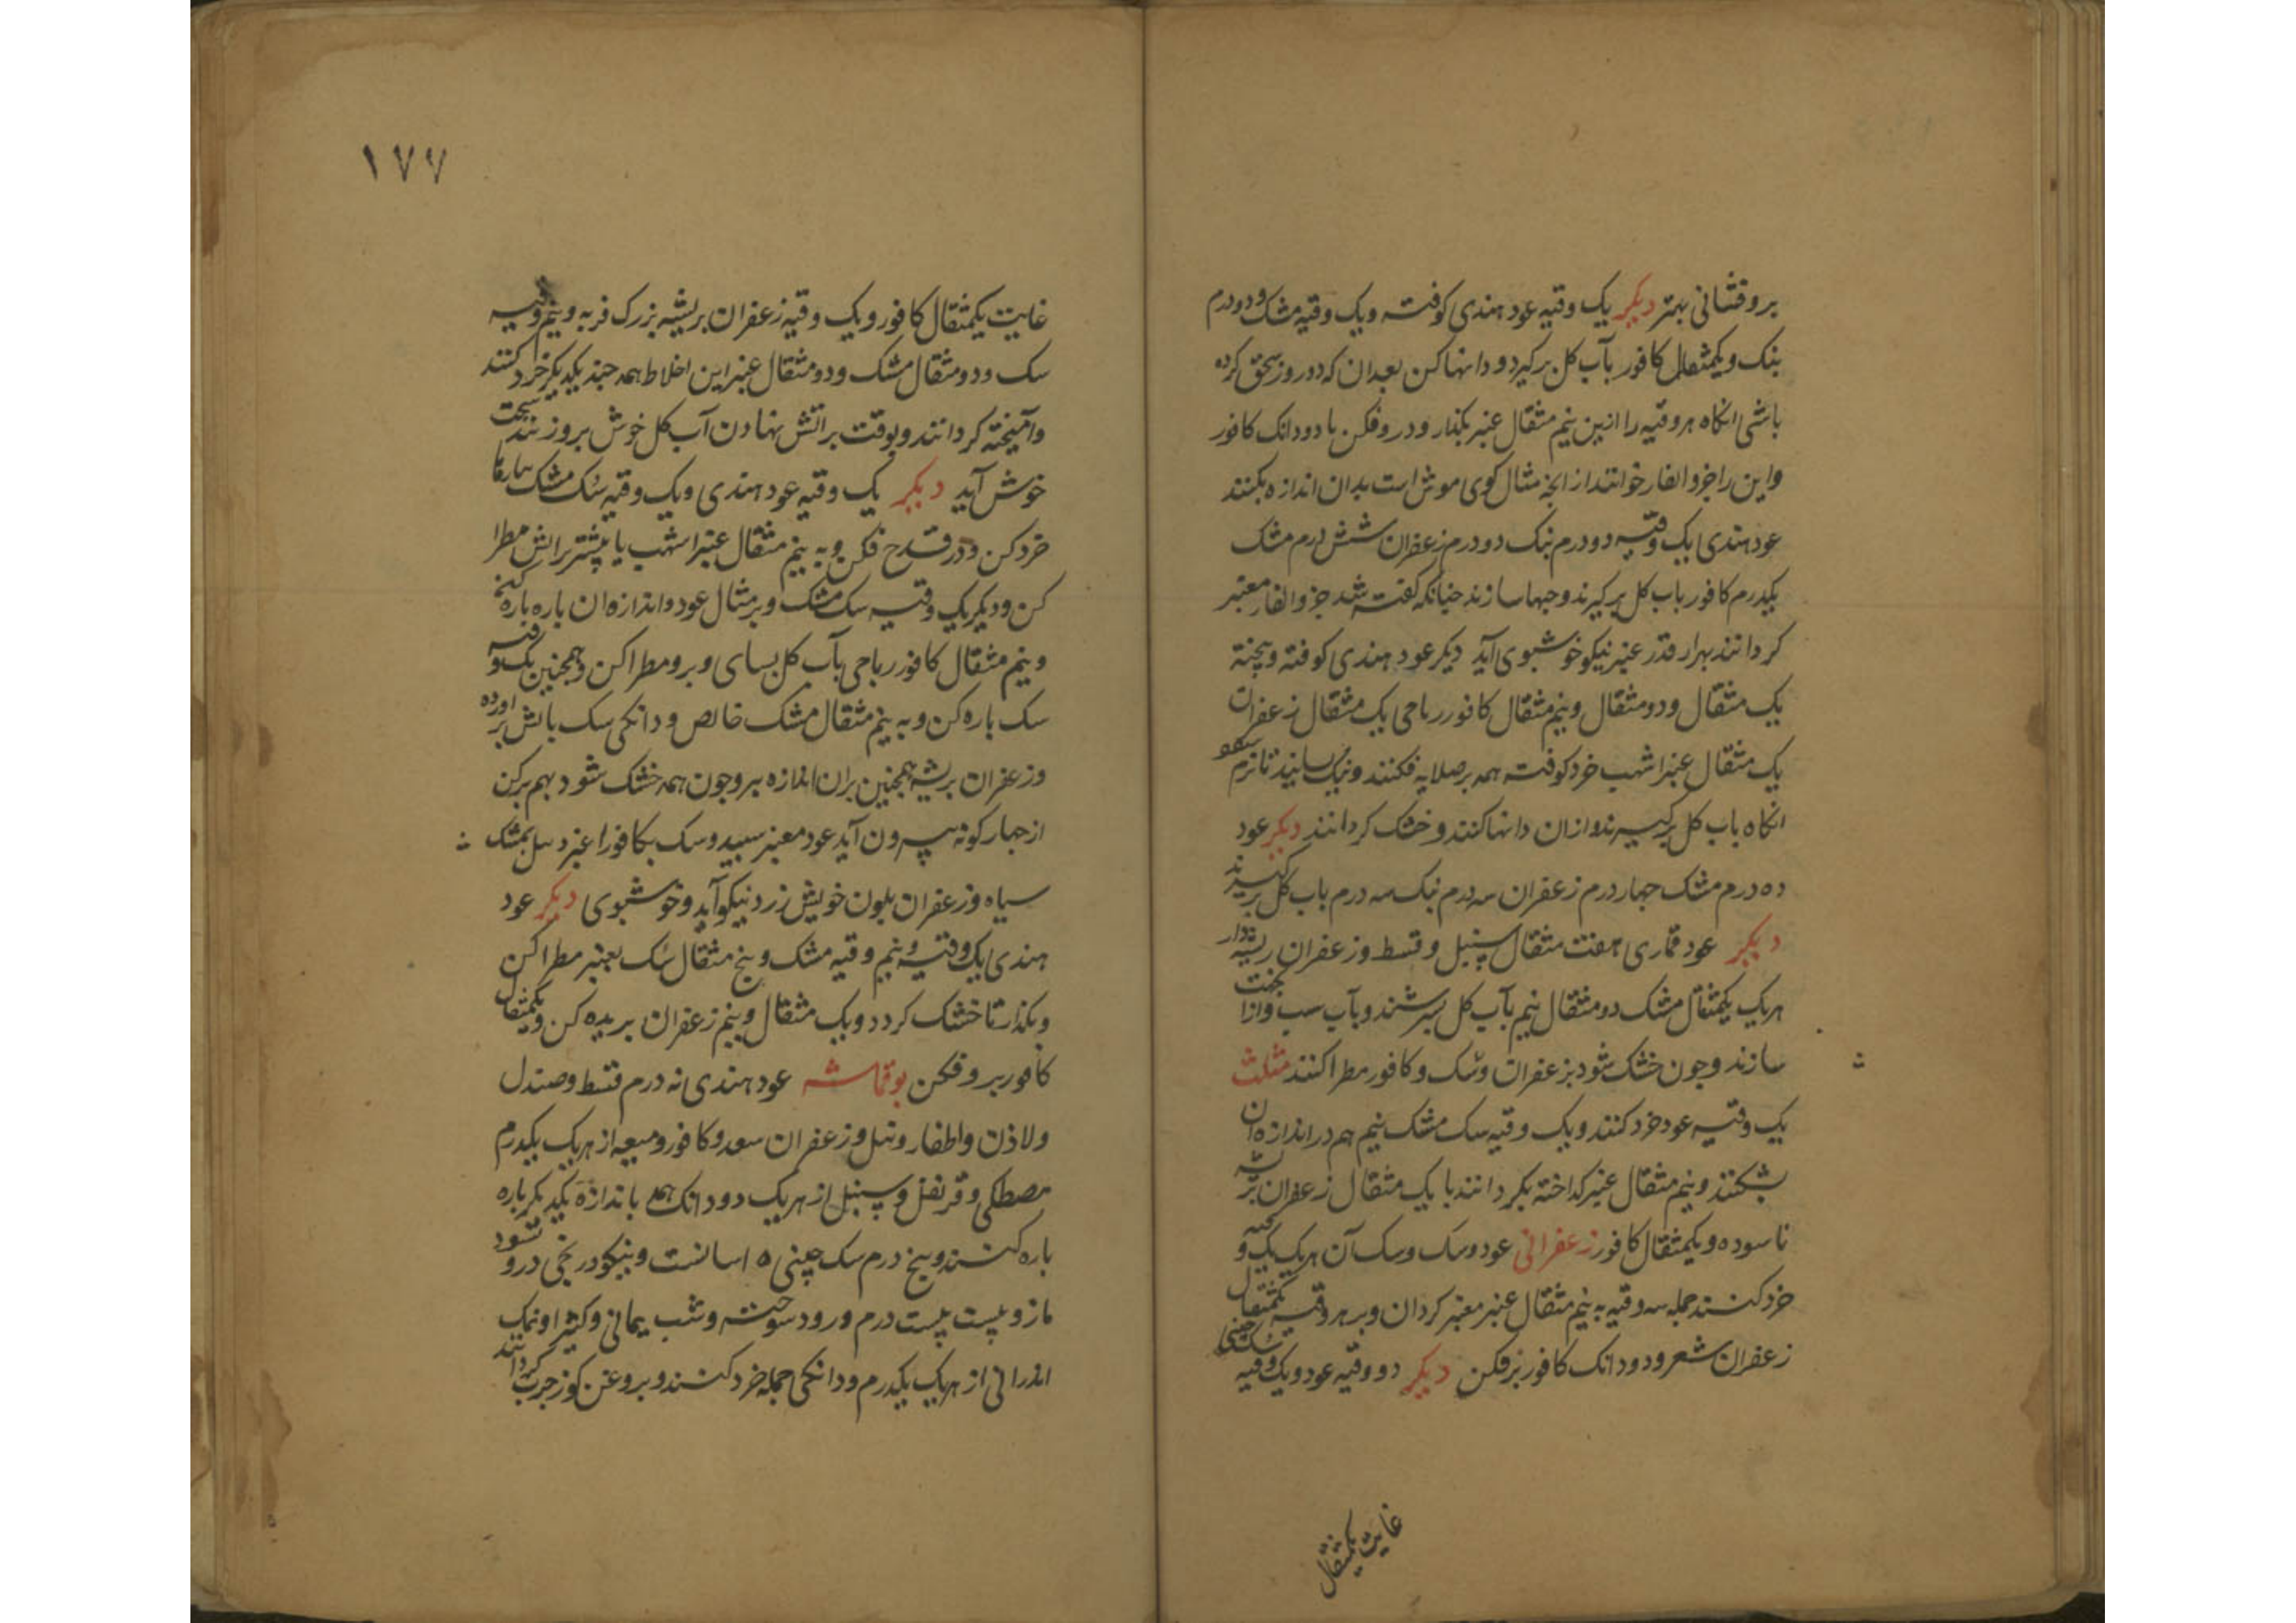 بروفشانی بهتر دیکر یک وقیه عود هندی کوفته ویک وقیه مشک ودودرم
بنک ویکمثقال کافور بآب کل برکیرد ودانها کن بعدان که دوروز سحق کرده
باشی انکاه هروقیه را ازین نیم مثقال عنبر بکذار ودروفکن با دودانک کافور
واین را خروالفار خوانند از انجه مثال کوی موش است بدان اندازه بکنند
عود هندی یک وقیه دودرم بنک دودرم زعفران شش درم مشک
یکدرم کافور باب کل برکیرند وحبها سازند جنانکه کفته شد خروالفار معتبر
کردانند بهرار قدر عنبر نیکو خوشبوی آید دیکر عود هندی کوفته وبیخته
یک مثقال ودومثقال ونیم مثقال کافور رباحی یک مثقال زعفران
یک مثقال عنبر اشهب خرد کوفته همه بر صلایه فکنند ونیک بسایند تا نرم شود
انکاه باب کل برکیرند وازان دانها کنند وخشک کردانند دیکر عود
ده درم مشک جهار درم زعفران سه درم بنک سه درم باب کل برکیرند
دیکر عود قماری هفت مثقال سنبل وقسط وزعفران ریشه دار
هریک یکمثقال مشک دومثقال نیم بآب کل بسرشند وبآب سب
سازند وجون خشک شود بزعفران وسک وکافور مطرا کنند مثلث
یک وقیه عود خرد کنند ویک وقیه سک مشک نیم هم در اندازه ان
بشکنند ونیم مثقال عنبر کداخته بکردانند با یک مثقال زعفران بریشه
ناسوده ویکمثقال کافور زعفرانی عود وسک وسک آن هریک یک وقیه
خرد کنند جمله سه وقیه به نیم مثقال عنبر معنبر کردان وبر هر وقیه یکمثقال
زعفران شعر ودودانک کافور برفکن دیکر دو وقیه عود ویک وقیه سک
غایت یکمثقال
۱۷۷
غایت یکمثقال کافور ویک وقیه زعفران بریشه بزرک فربه ونیم وقیه
سک ودومثقال مشک ودومثقال عنبر این اخلاط همه جند یکدیکر خرد کنند
وآمیخته کردانند وبوقت براتش نهادن آب کل خوش بروزنند سخت
خوش آید دیکر یک وقیه عود هندی ویک وقیه سک مشک
خرد کن ودر قدح فکن وبه نیم مثقال عنبر اشهب یا بیشتر براتش مطرا
کن ودیکر یک وقیه سک مشک وبر مثال عود واندازه ان باره باره کنم
ونیم مثقال کافور رباحی بآب کل بسای وبرو مطرا کن وهمجنین یک وقیه
سک باره کن وبه نیم مثقال مشک خالص ودانکی سک باتش براورده
وزعفران بریشه همجنین بران اندازه ببر وجون همه خشک شود بهم برکن
از جهار کونه بیرون آید عود معنبر سبید وسک بکافور اغبر وسک بمشک
سیاه وزعفران بلون خویش زرد نیکو آید وخوشبوی دیکر عود
هندی یک وقیه ونیم وقیه مشک وبنج مثقال سک بعنبر مطرا کن
وبکذار تا خشک کردد ویک مثقال ونیم زعفران بریده کن ویکمثقال
کافور بروفکن بوقماشه عود هندی نه درم قسط وصندل
ولاذن واظفار ونیل وزعفران سعد وکافور ومیعه از هریک یکدرم
مصطکی وقرنفل وسنبل از هریک دودانک همه باندازه یکدیکر باره
باره کنند وبنج درم سک جینی ه اسانست ونیکو در بختی درو شود
مازو بیست بیست درم ورود سوخته وشب یمانی وکثیرا ونمک
اندرانی از هریک یکدرم ودانکی جمله خرد کنند وبروغن کوز جرب کردانند